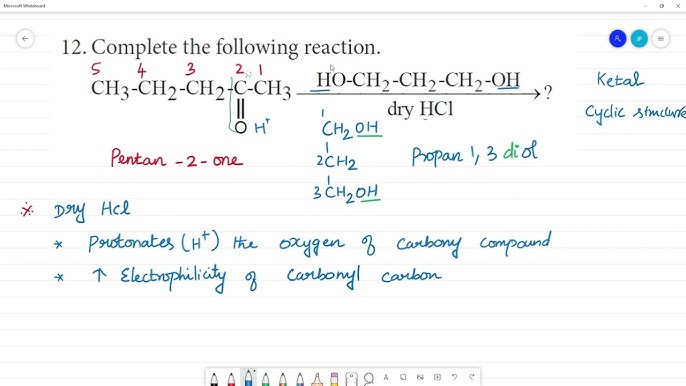 Microsoft Whiteboard
12. Complete the following reaction.
5 4 3 2 1
CH3-CH2-CH2-C-CH3 HO-CH2-CH2-CH2-OH ?
dry HCl
O H+
Ketal
Cyclic structure
1 CH2OH
2CH2
3 CH2OH
Pentan-2-one
Propan 1, 3 diol
* Dry Hcl
* Protonates (H+) the oxygen of carbony compound
* ↑ Electrophilicity of carbonyl carbon